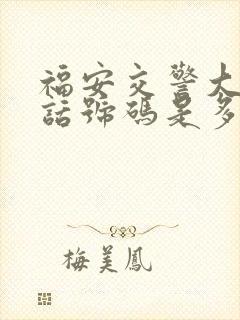 福安交警大
話號碼是多
梅美鳳